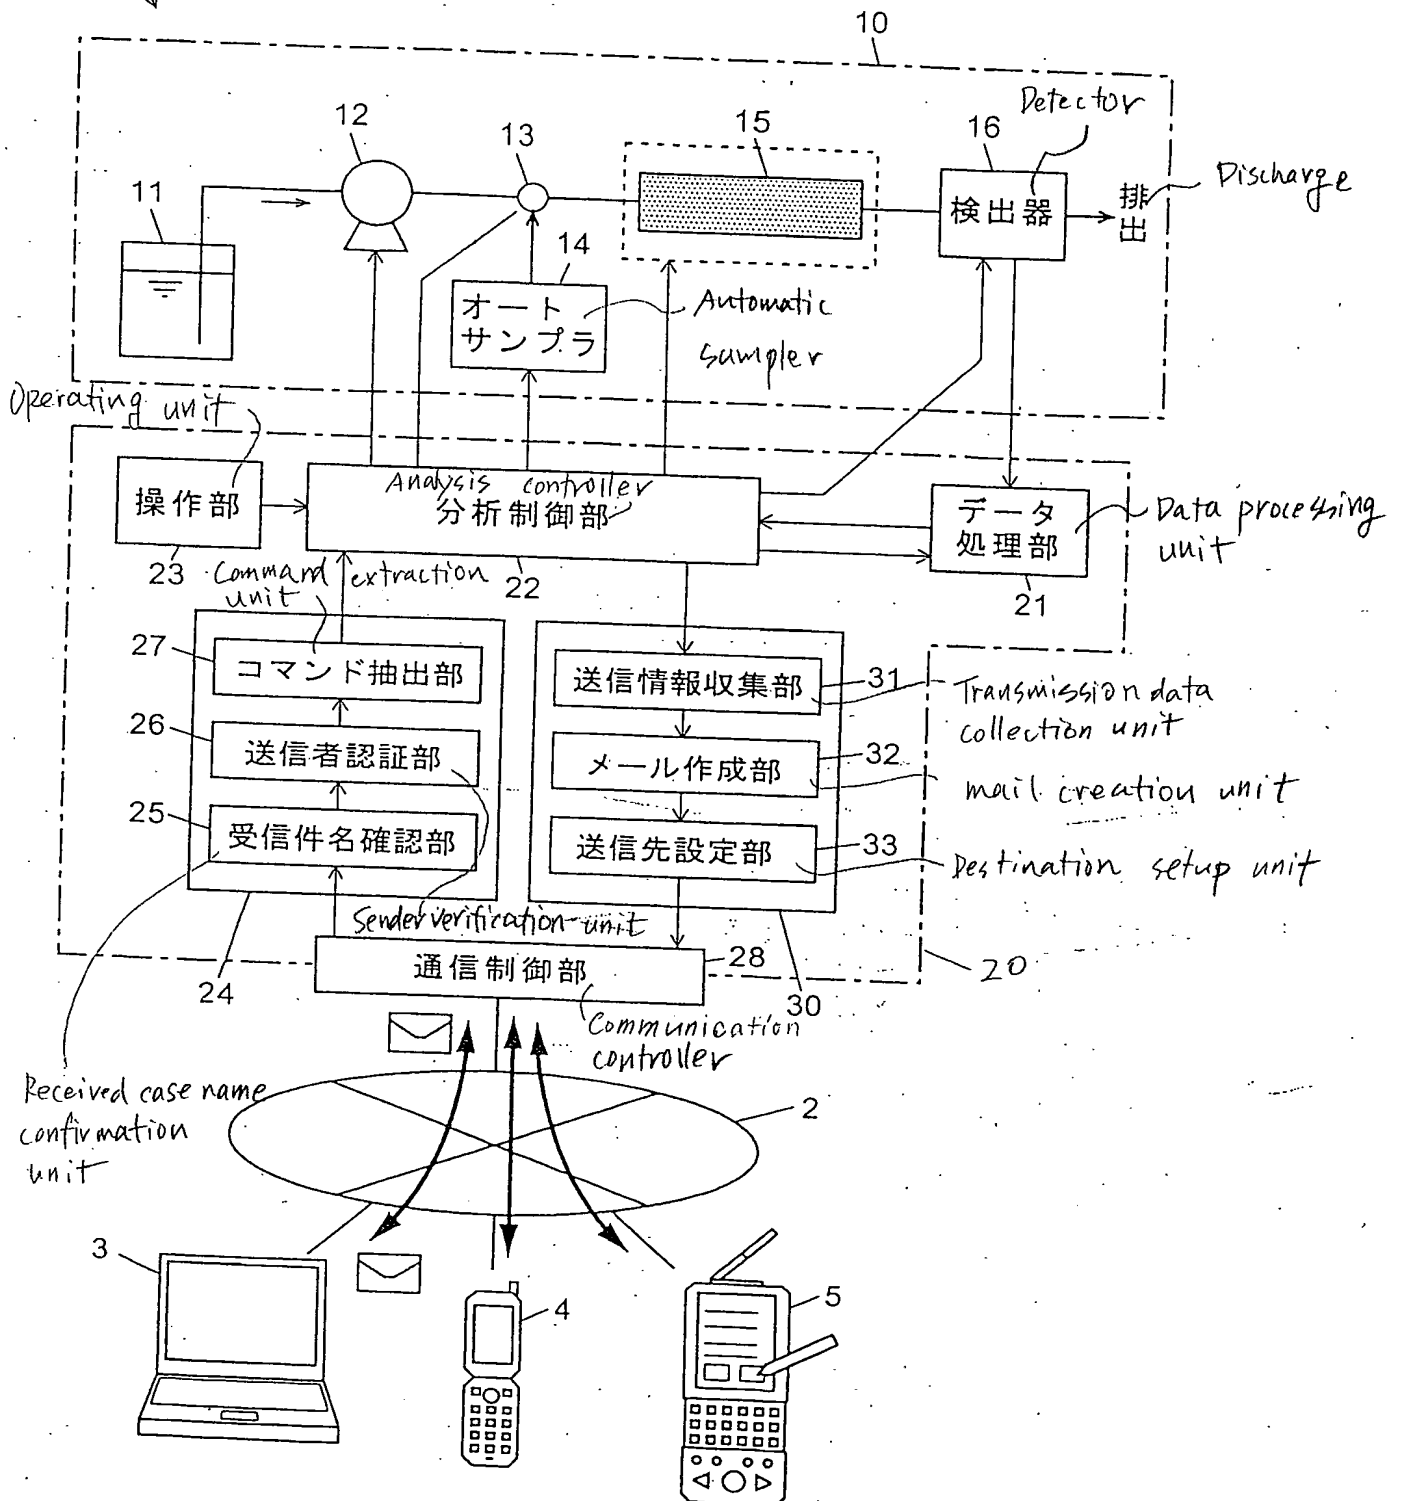 10
Detector
12
13
15
16
11
検出器
排出
Discharge
14
オート
サンプラ
Automatic
sumpler
Operating unit
操作部
Analysis controller
分析制御部
データ
処理部
Data processing
unit
23
Command extraction
unit
22
21
27
コマンド抽出部
送信情報収集部
31
Transmission data
collection unit
26
送信者認証部
メール作成部
32
mail creation unit
25
受信件名確認部
送信先設定部
33
Destination setup unit
Sender verification unit
通信制御部
28
20
24
30
Communication
controller
Received case name
confirmation
unit
2
3
4
5